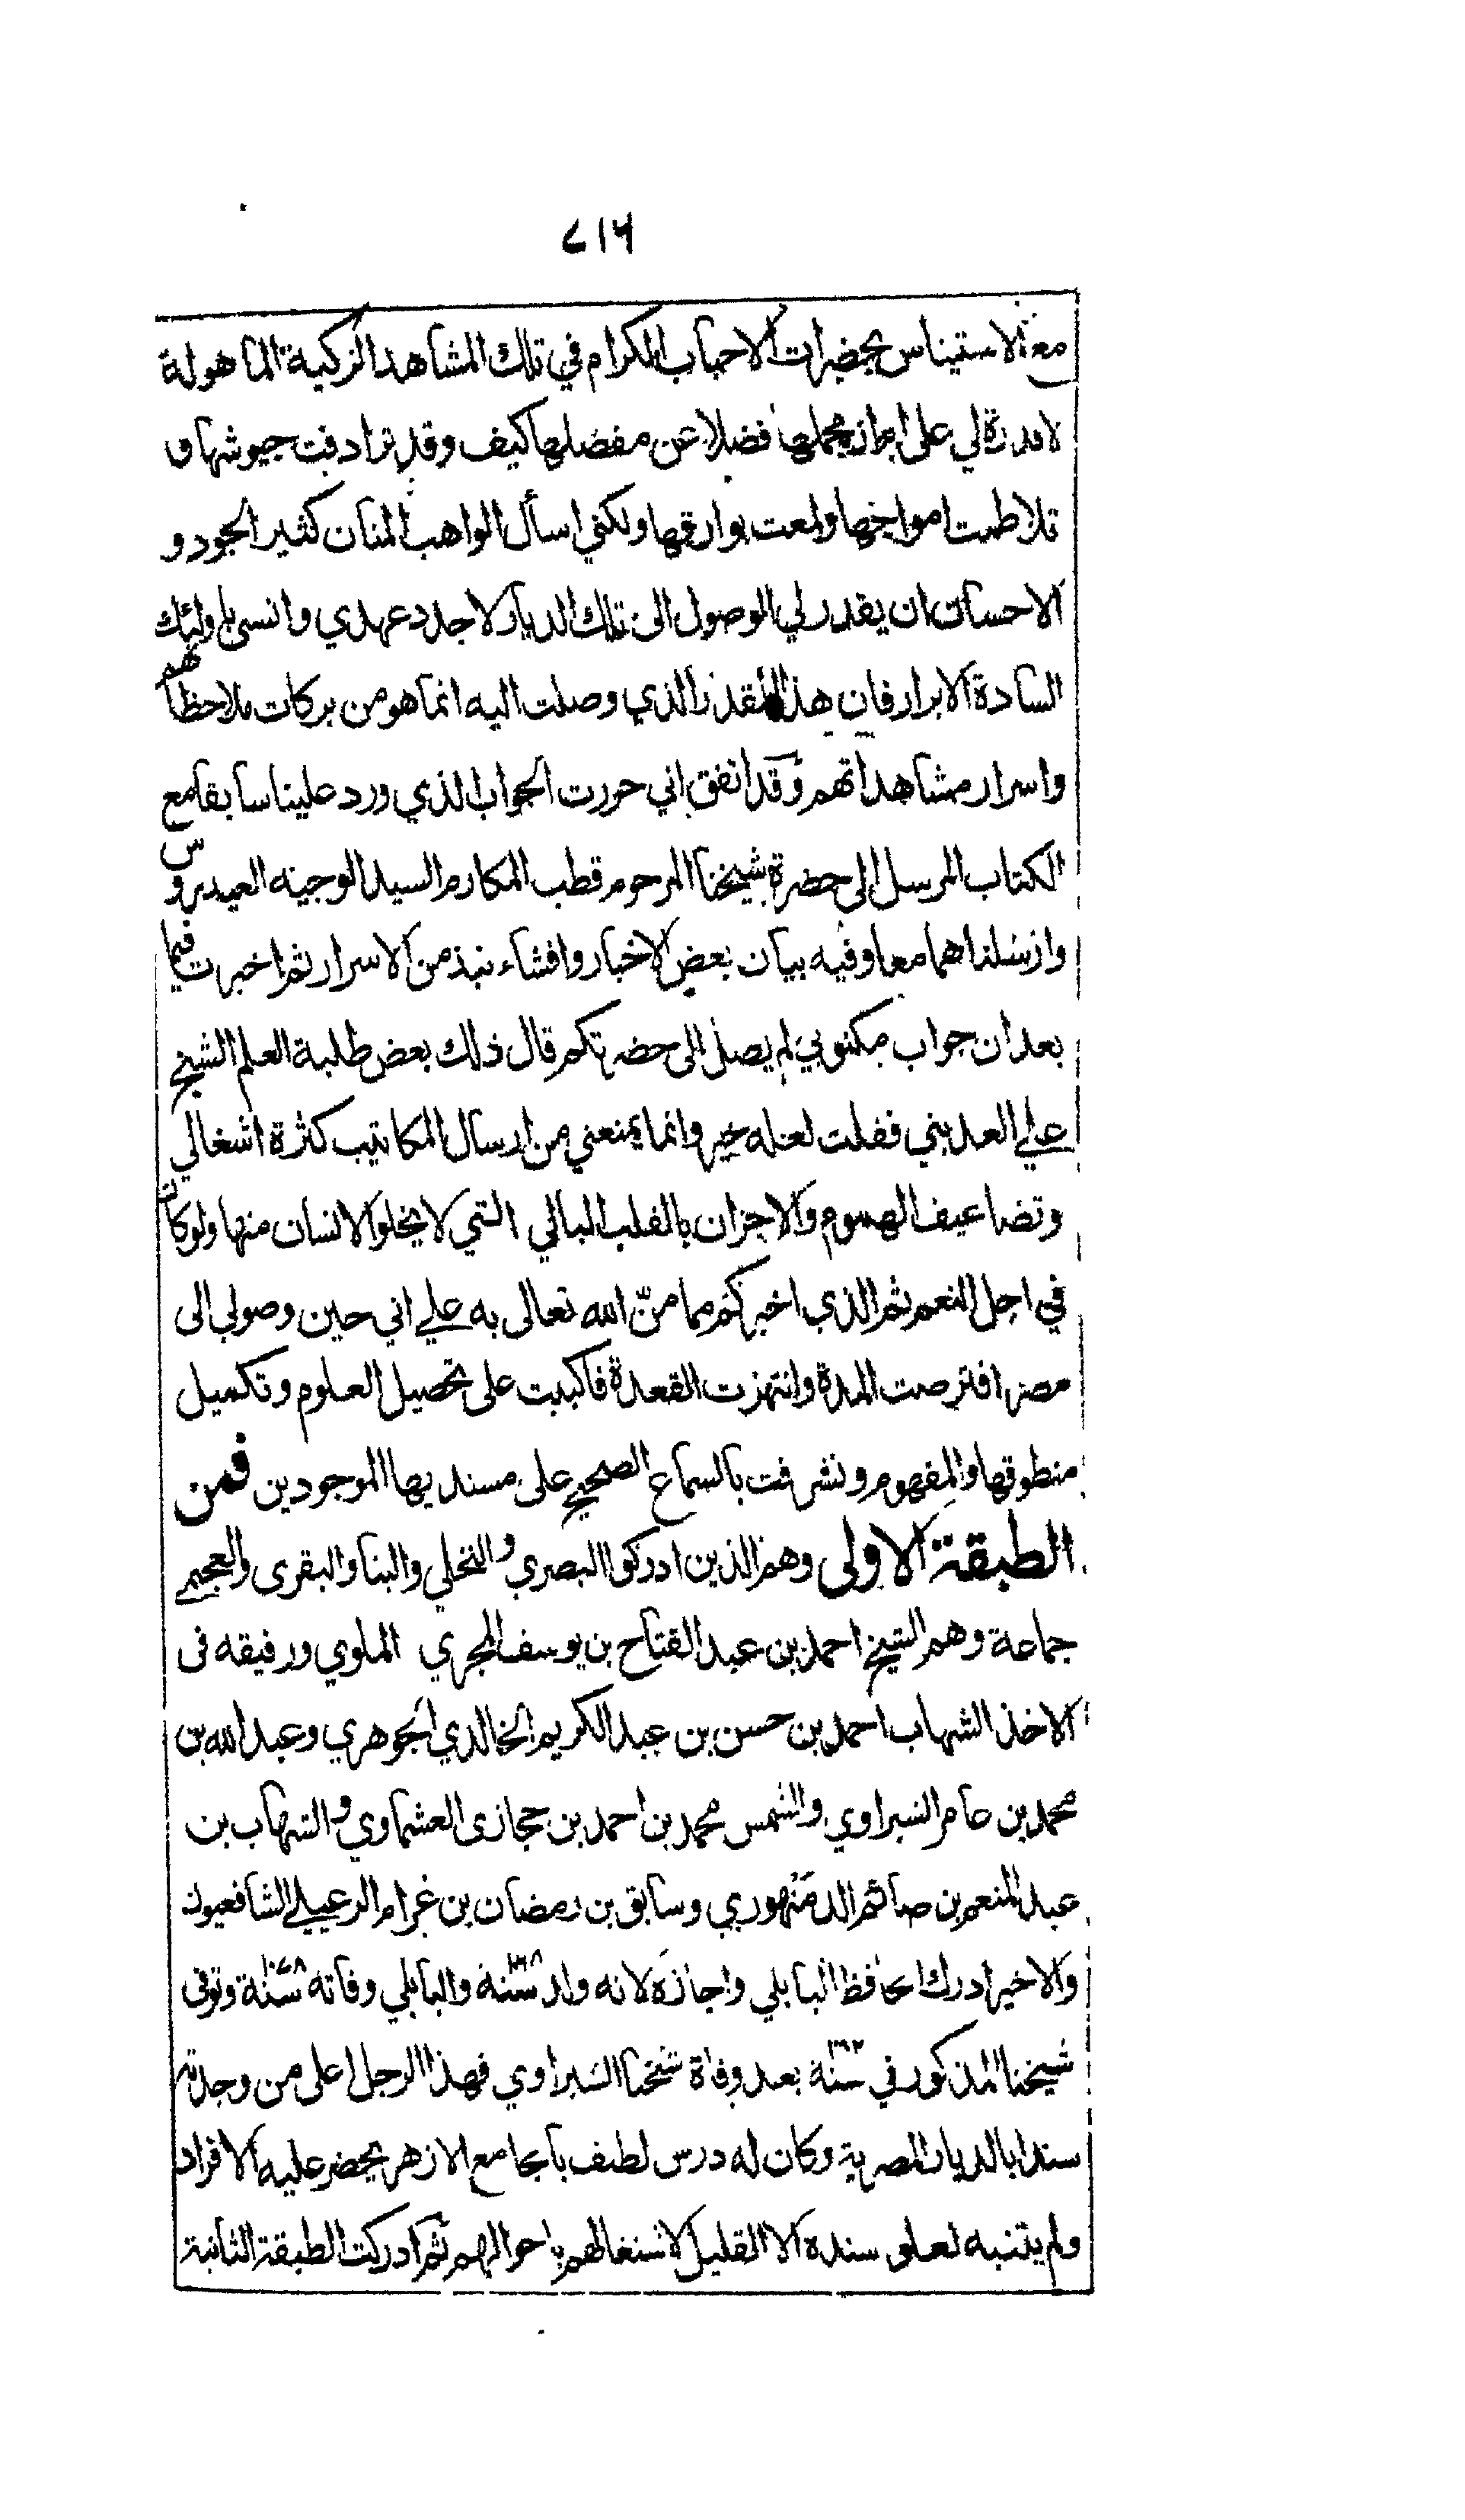 ٧١٦
مع الاستيناس بحضرات الاحباب الكرام في تلك المشاهد الزكية الماهولة
لا قدرة لي على ابراز مجملها فضلا عن مفصلها كيف وقد ترادفت جيوشها و
تلاطمت امواجها ولمعت بوارقها ولكني اسأل الواهب المنان كثير الجود و
الاحسان ان يقدر لي الوصول الى تلك الديار لاجدد عهدي وانسي باولئك
السادة الابرار فان هذا المقدر الذي وصلت اليه انما هو من بركات ملاحظاتهم
واسرار مشاهداتهم وقد اتفق اني حررت الجواب الذي ورد علينا سابقا مع
الكتاب المرسل الى حضرة شيخنا المرحوم قطب المكارم السيد الوجيه العيدروس
وارسلناهما معا وفيه بيان بعض الاخبار وافشاء نبذ من الاسرار ثم اخبرت فيما
بعد ان جواب مكتوبي لم يصل الى حضرتكم قال ذلك بعض طلبة العلم الشيخ
علي العديني فقلت لعله خير وانما يمنعني من ارسال المكاتيب كثرة اشغالي
وتضاعيف الهموم والاحزان بالقلب البالي التي لا يخلو الانسان منها ولو كان
في اجل النعم ثم الذي اخبركم مما منّ الله تعالى به علي اني حين وصولي الى
مصر افترصت المدة وانتهزت القعدة فاكببت على تحصيل العلوم وتكميل
منطوقها والمفهوم وتشرفت بالسماع الصحيح على مسنديها الموجودين فمن
الطبقة الاولى وهم الذين ادركوا البصري والنخلي والبنا والبقرى والعجيمي
جماعة وهم الشيخ احمد بن عبد الفتاح بن يوسف المجري الملوي ورفيقه فى
الاخذ الشهاب احمد بن حسن بن عبد الكريم الخالدي الجوهري وعبد الله بن
محمد بن عامر الشبراوي والشمس محمد بن احمد بن حجازى العشماوي والشهاب بن
عبد المنعم بن صائم الدمنهوري وسابق بن رمضان بن غرام الزعبلي الشافعيون
والاخير ادرك الحافظ البابلي واجازه لانه ولد سنة ١٠٦٨ والبابلي وفاته سنة ١٠٧٨ وتوفى
شيخنا المذكور في سنة بعد وفاة شيخنا الشبراوي فهذا الرجل اعلى من وجدته
سندا بالديار المصرية وكان له درس لطيف بالجامع الازهر يحضر عليه الافراد
ولم يتنبه لعلو سنده الا القليل لاشتغالهم باحوالهم ثم ادركت الطبقة الثانية